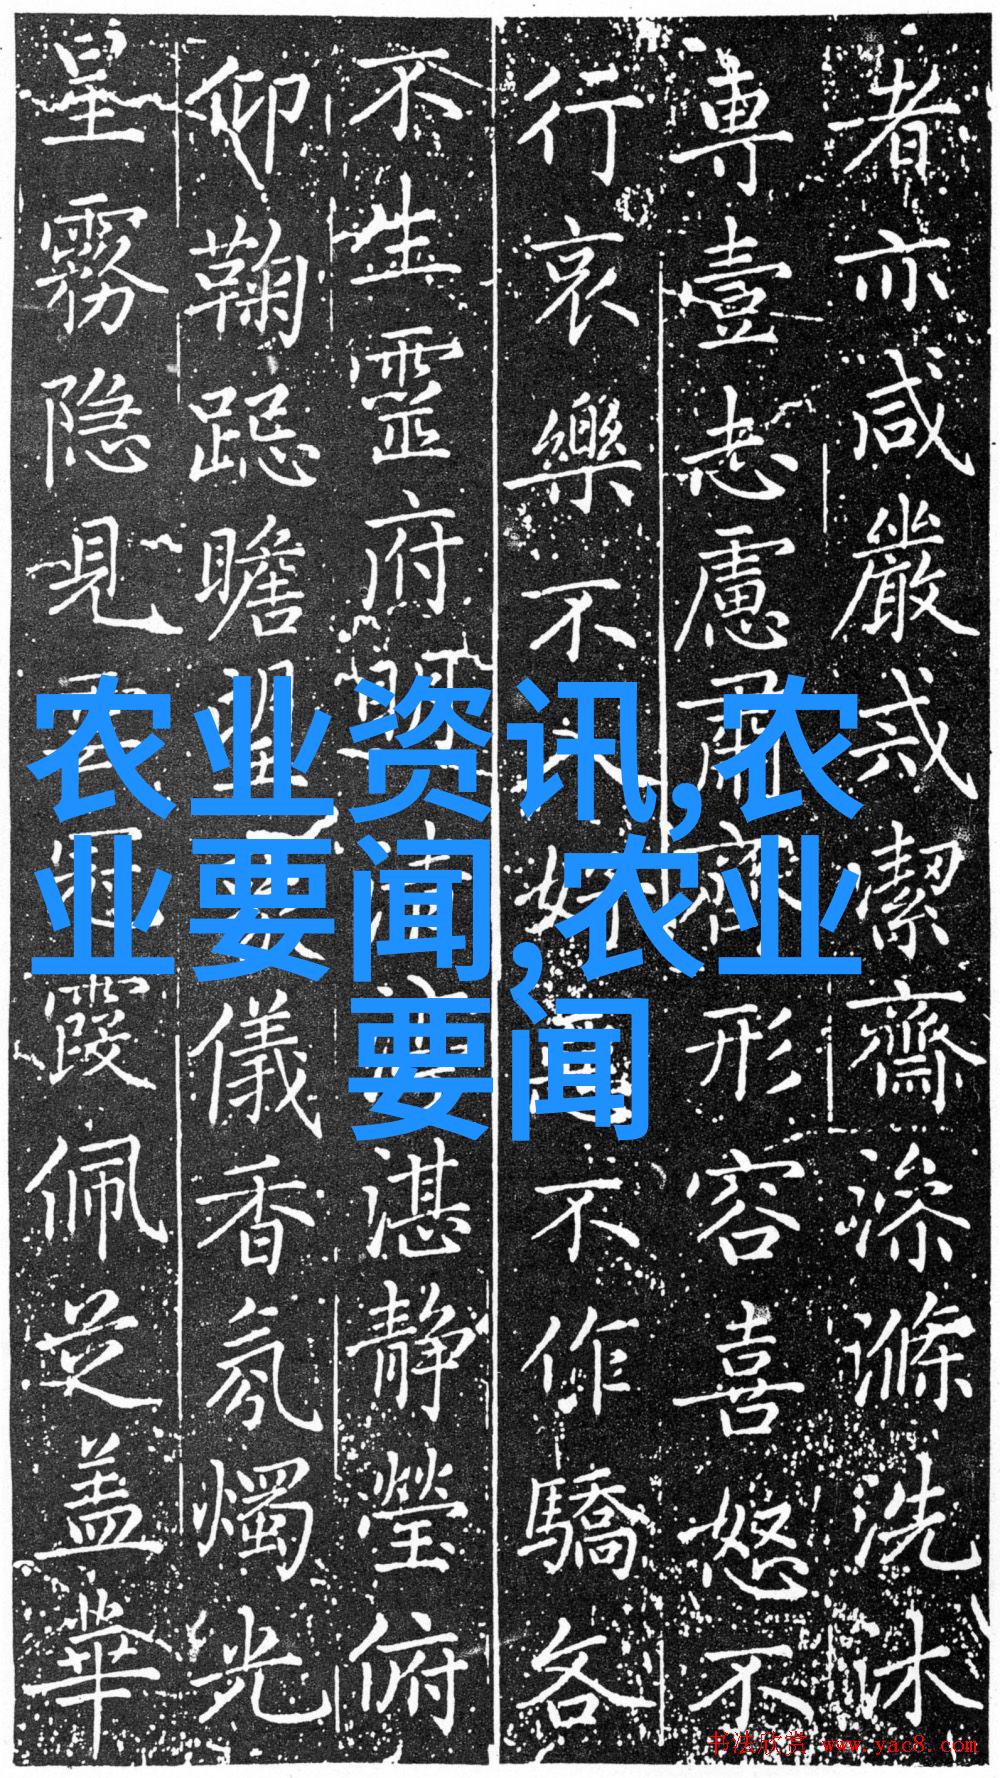 者亦咸嚴戒潔齋澡滌洗沐
專壹志慮肅齊形容喜怒不
行哀樂不好不作驕各
不生靈府明清湛静瑩俯
仰鞠跽瞻望儀香氛燭光
星霧隐見雲冠霞佩芝盖華
农业资讯,农
业要闻,农业
要闻
书法欣赏 www.yac8.com